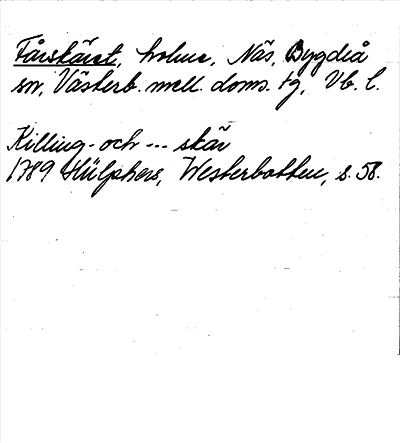 Fårskäret, holme, Näs, Bygdeå
sn, Västerb. mell. doms. tg, Vb. l.
Killing- och --- skär
1789 Hülphers, Westerbotten, s. 58.